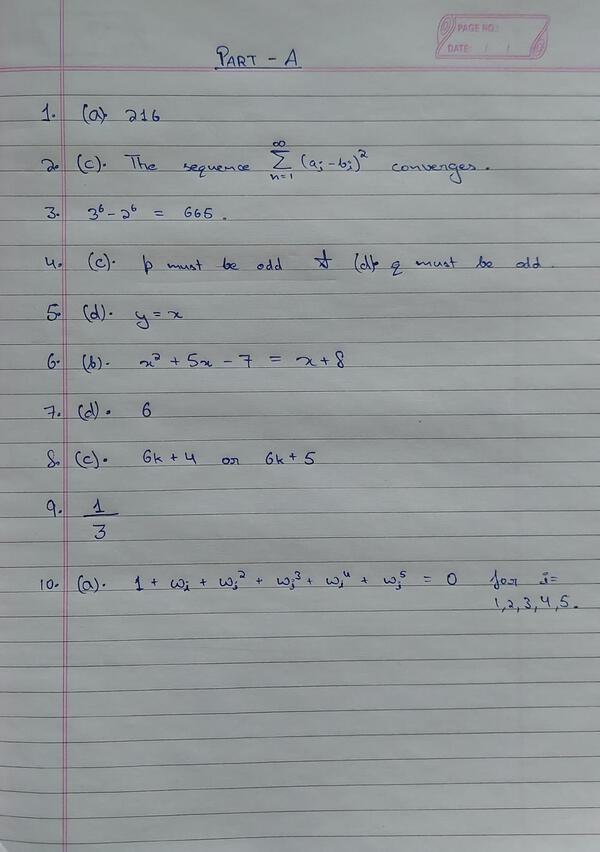 PAGE NO.:
DATE: / /
PART - A
1. (a). 216
2. (c). The sequence ∞∑n=1 (ai - bi)² converges.
3. 3⁶ - 2⁶ = 665.
4. (c). p must be odd (d). q must be odd.
5. (d). y = x
6. (b). x² + 5x - 7 = x + 8
7. (d). 6
8. (c). 6k + 4 or 6k + 5
9. 1/3
10. (a). 1 + ωi + ωi² + ωi³ + ωi⁴ + ωi⁵ = 0 for i =
1, 2, 3, 4, 5.